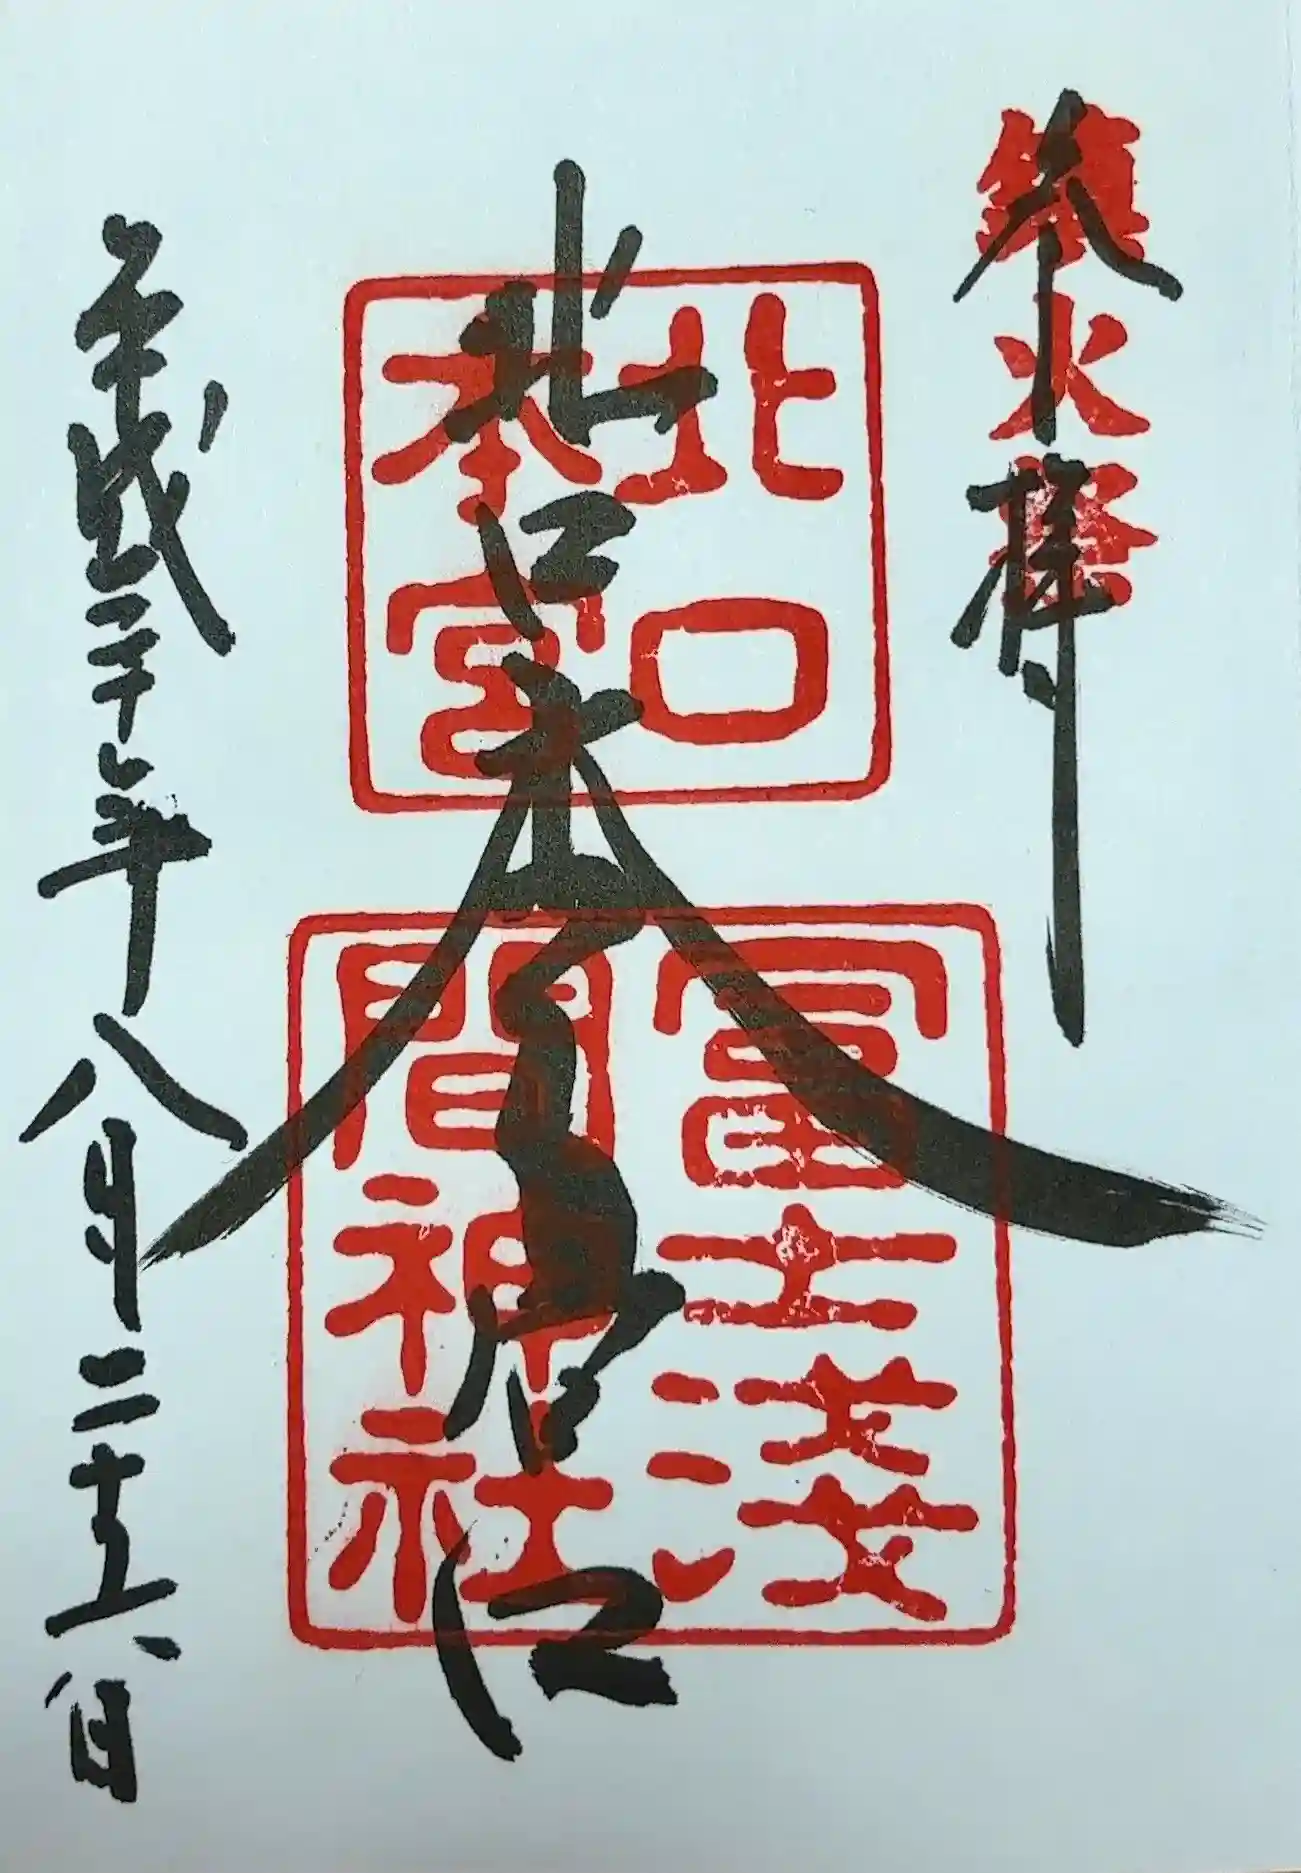 奉拝
鎮火祭
北口本宮
北口
本宮
冨士淺
間神社
平成三十年八月二十六日